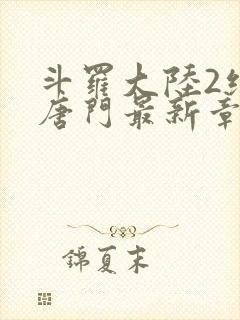 斗羅大陸2
唐門最新章
錦夏末